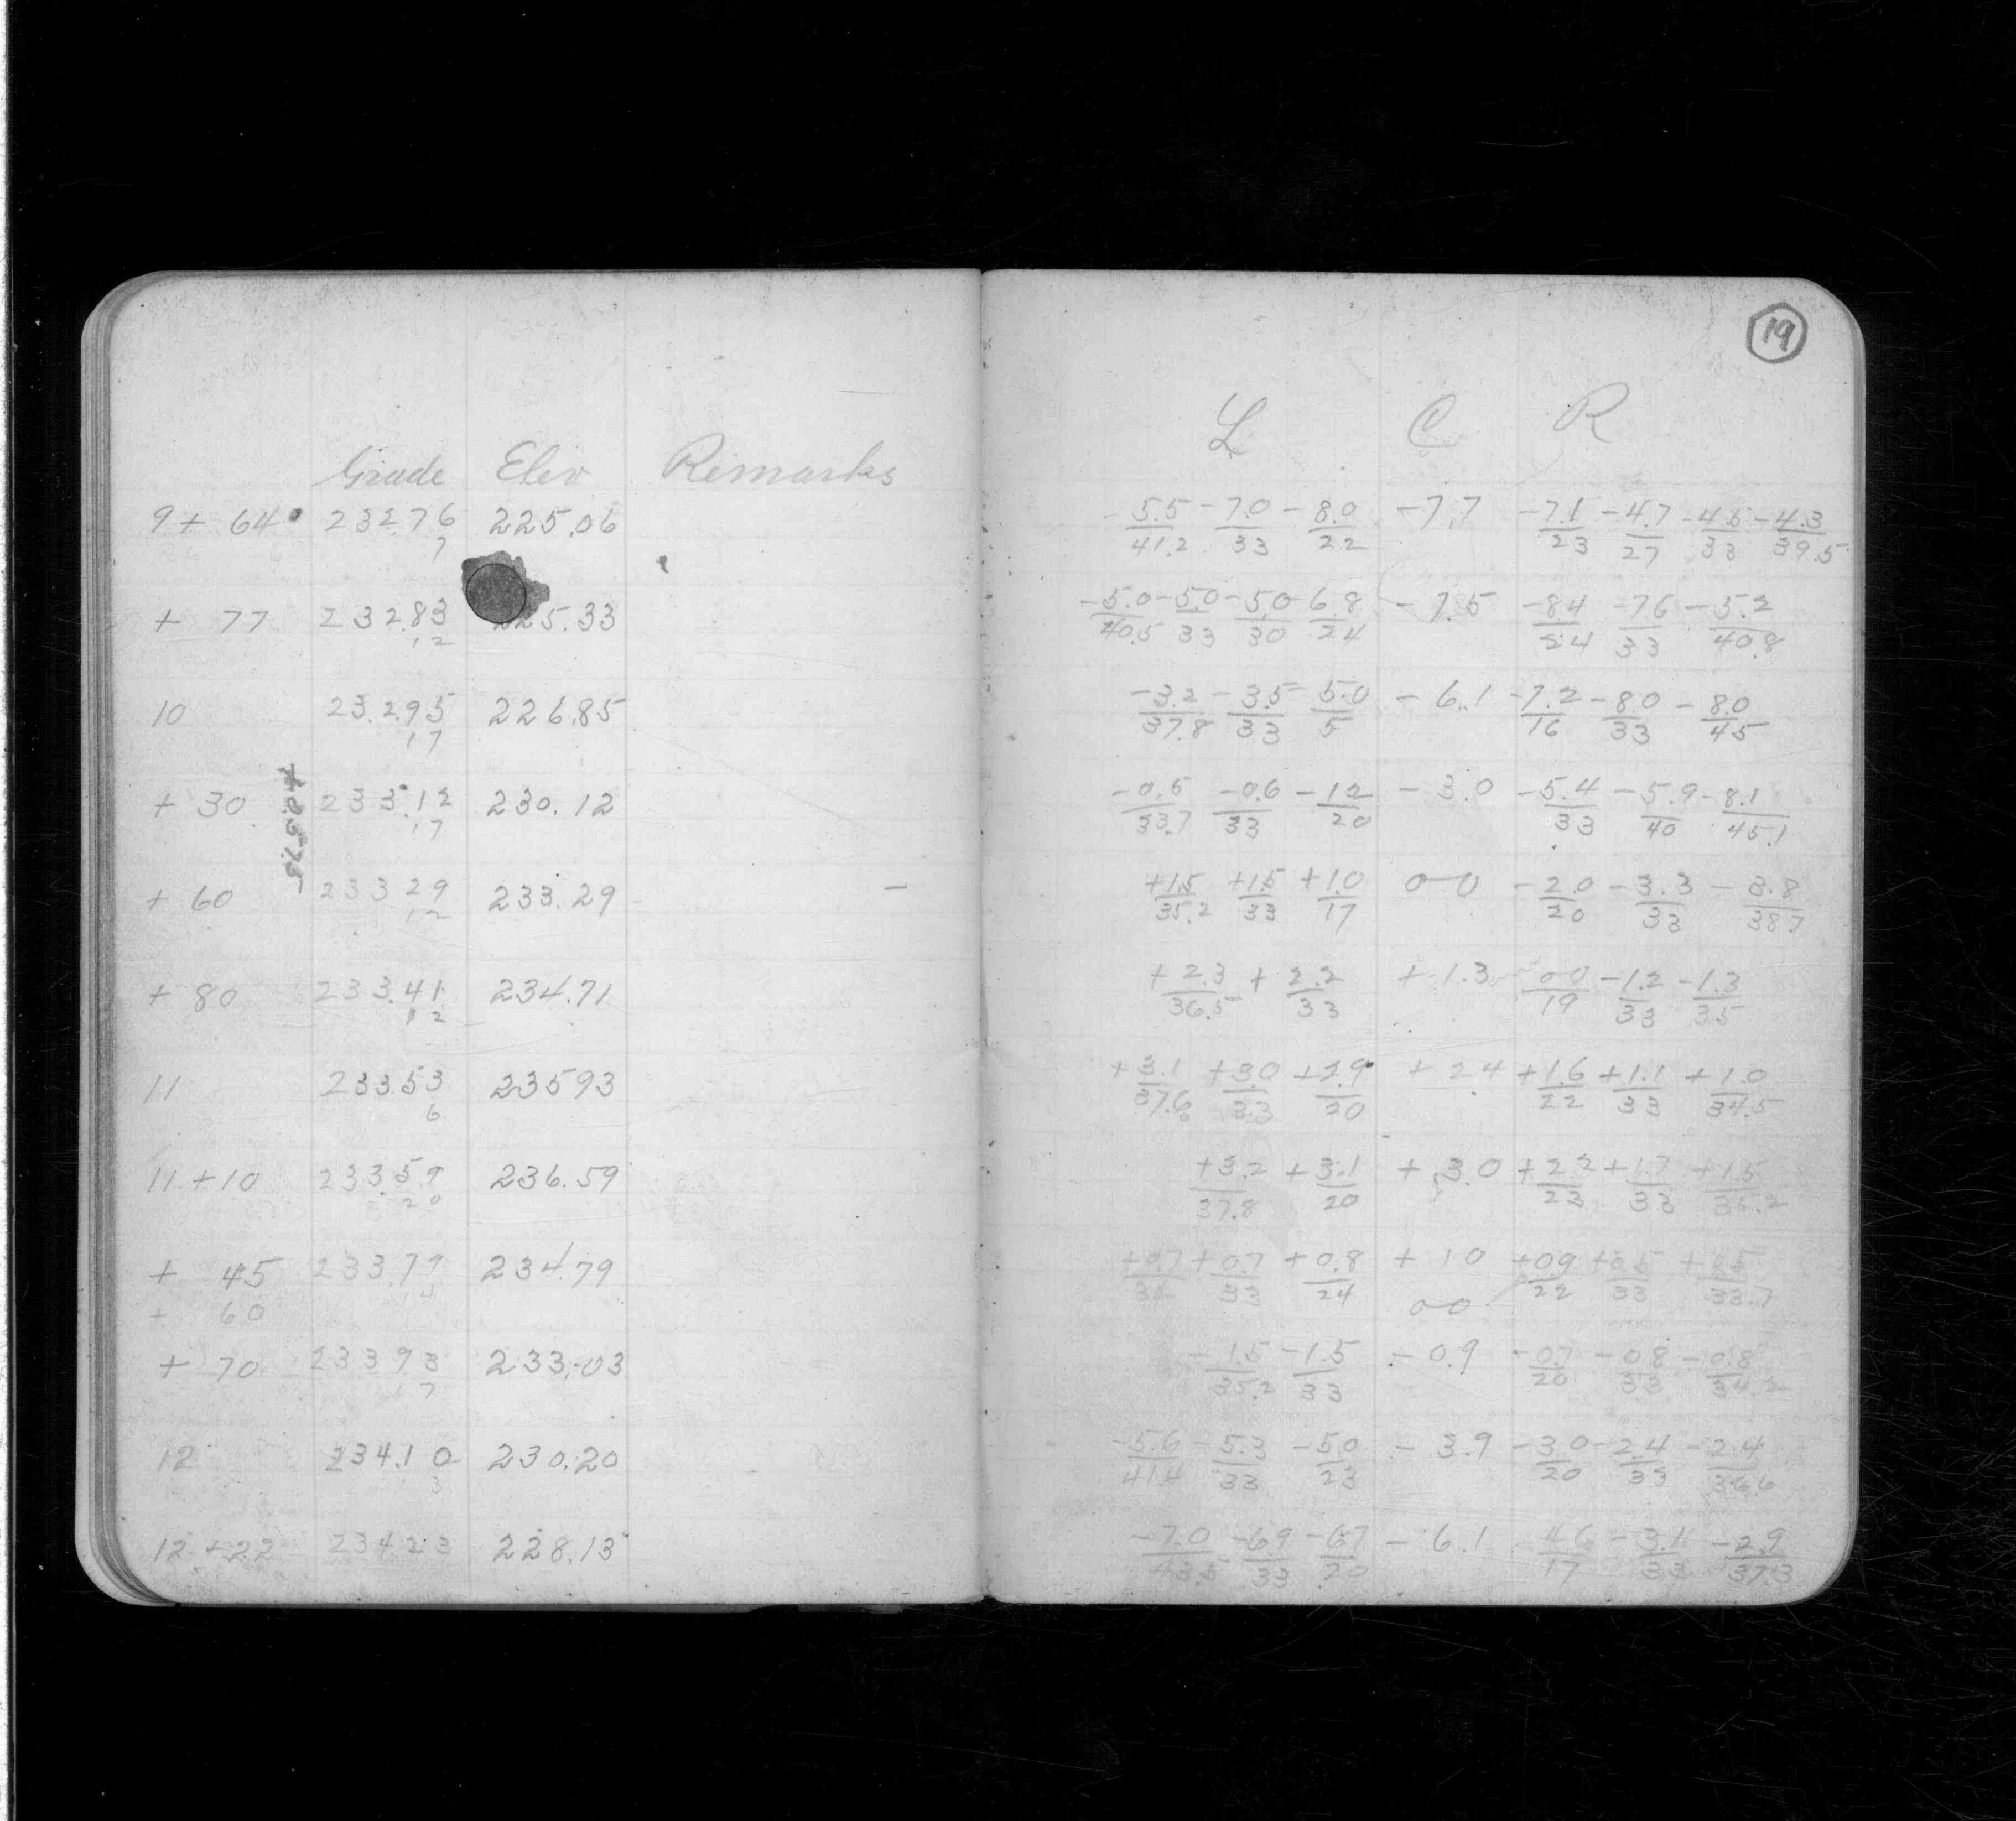 19
Grade Elev Remarks
L C R
9 + 64 232.76 225.06 -5.5/41.2 -7.0/33 -8.0/22 -7.7 -7.1/23 -4.7/27 -4.5/33 -4.3/39.5
7
+ 77 232.83 225.33 -5.0/40.5 -5.0/33 -5.0/30 -6.8/24 -7.5 -8.4/24 -7.6/33 -5.2/40.8
12
10 232.95 226.85 -3.2/37.8 -3.5/33 -5.0/5 -6.1 -7.2/16 -8.0/33 -8.0/45
17
+ 30 233.12 230.12 -0.5/33.7 -0.6/33 -1.2/20 -3.0 -5.4/33 -5.9/40 -8.1/45.1
17
+ 60 233.29 233.29 +1.5/35.2 +1.5/33 +1.0/17 0-0 -2.0/20 -3.3/33 -3.8/38.7
12
+ 80 233.41 234.71 +2.3/36.5 +2.2/33 +1.3 0-0/19 -1.2/33 -1.3/35
12
11 233.53 235 93 +3.1/37.6 +3.0/33 +2.9/20 +2.4 +1.6/22 +1.1/33 +1.0/34.5
6
11 + 10 233.59 236.59 +3.2/37.8 +3.1/20 +3.0 +2.2/23 +1.7/33 +1.5/35.2
20
+ 45 233.79 234.79 +0.7/34 +0.7/33 +0.8/24 +1.0 +0.9/22 +0.5/33 +0.5/33.7
14
+ 60 0-0
+ 70 233.93 233.03 -1.5/35.2 -1.5/33 -0.9 -0.7/20 -0.8/33 -0.8/34.2
17
12 234.10 230.20 -5.6/41.4 -5.3/33 -5.0/23 -3.9 -3.0/20 -2.4/33 -2.4/36.6
3
12 + 22 234.23 228.13 -7.0/43.5 -6.9/33 -6.7/20 -6.1 -4.6/17 -3.1/33 -2.9/37.3